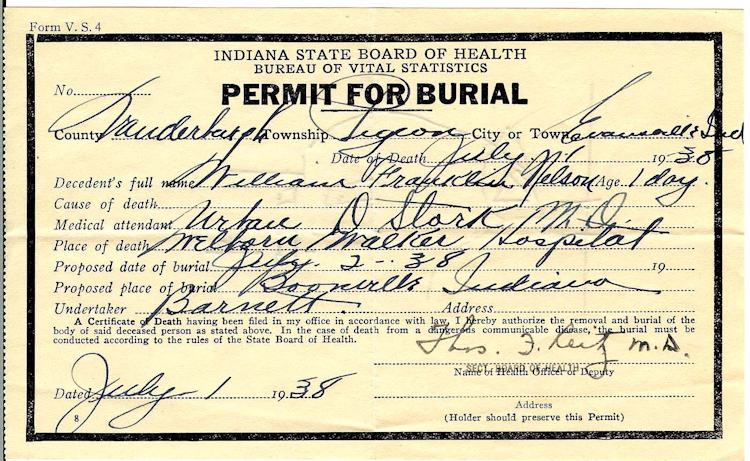 Form V. S. 4
INDIANA STATE BOARD OF HEALTH
BUREAU OF VITAL STATISTICS
No.
PERMIT FOR BURIAL
County Vanderburgh Township Pigeon City or Town Evansville Ind
Date of Death July 1 1938
Decedent's full name William Franklin Nelson Age 1 day.
Cause of death
Medical attendant Urban D Stork M.D.
Place of death Welborn Walker Hospital
Proposed date of burial July 2-38 19
Proposed place of burial Boonville Indiana
Undertaker Barnett. Address
A Certificate of Death having been filed in my office in accordance with law, I hereby authorize the removal and burial of the
body of said deceased person as stated above. In the case of death from a dangerous communicable disease, the burial must be
conducted according to the rules of the State Board of Health.
Thos. J. M.D.
SECT. BOARD OF HEALTH
Name of Health Officer or Deputy
Dated July 1 1938
Address
8
(Holder should preserve this Permit)